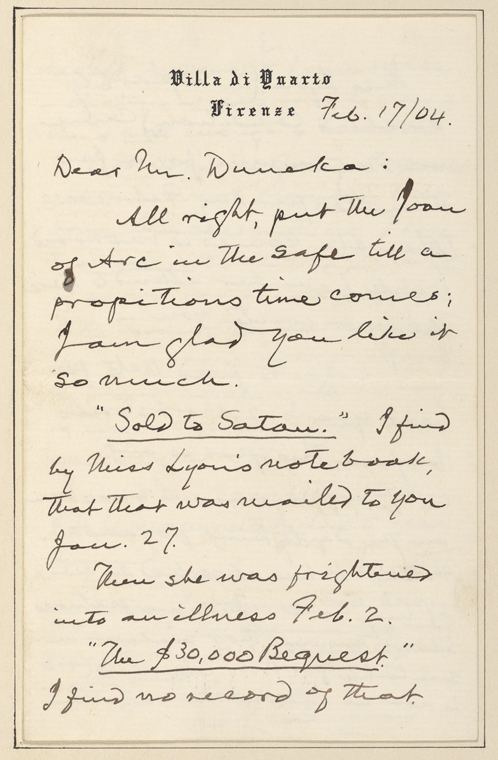 Villa di Quarto
Firenze Feb. 17/04.
Dear Mr. Duneka:
All right, put the Joan
of Arc in the safe till a
propitious time comes;
I am glad you like it
so much.
"Sold to Satan." I find
by Miss Lyon's note book,
that that was mailed to you
Jan. 27.
Then she was frightened
into an illness Feb. 2.
"The $30,000 Bequest."
I find no record of that.